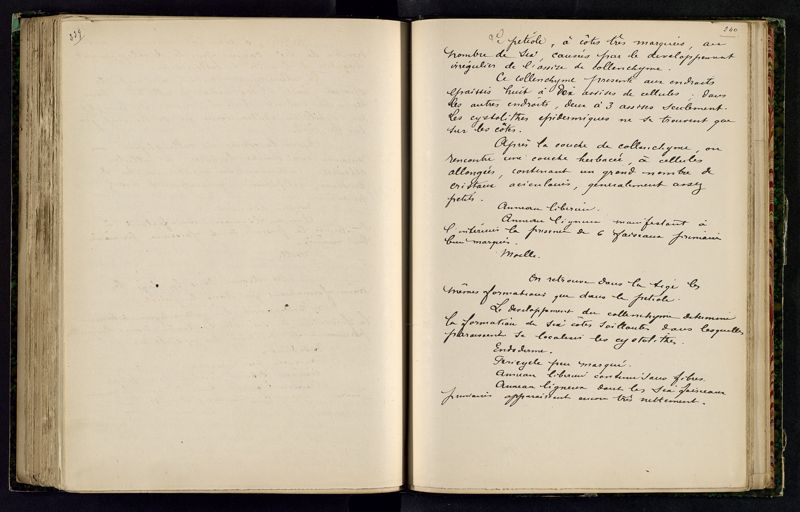 239
240
Le pétiole, à côtes très marquées, au
nombre de six, causées par le developpement
irrégulier de l'assise de collenchyme.
Ce collenchyme présente aux endroits
épaissis huit à dix assises de cellules, dans
les autres endroits, deux à 3 assises seulement.
Les cystolithes épidermiques ne se trouvent que
sur les côtes.
Après la couche de collenchyme, on
rencontre une couche herbacée, à cellules
allongées, contenant un grand nombre de
cristaux aciculaires, généralement assez
petits.
Anneau libérien.
Anneau ligneux manifestant à
l'intérieur la présence de 6 faisceaux primaires
bien marqués.
Moelle.
On retrouve dans la tige les
mêmes formations que dans le pétiole.
Le developpement du collenchyme détermine
la formation de six côtes saillantes dans lesquelles
paraissent se localiser les cystolithes.
Endoderme.
Péricycle peu marqué.
Anneau libérien continu sans fibres.
Anneau ligneux dont les six faisceaux
primaires apparaissent encore très nettement.